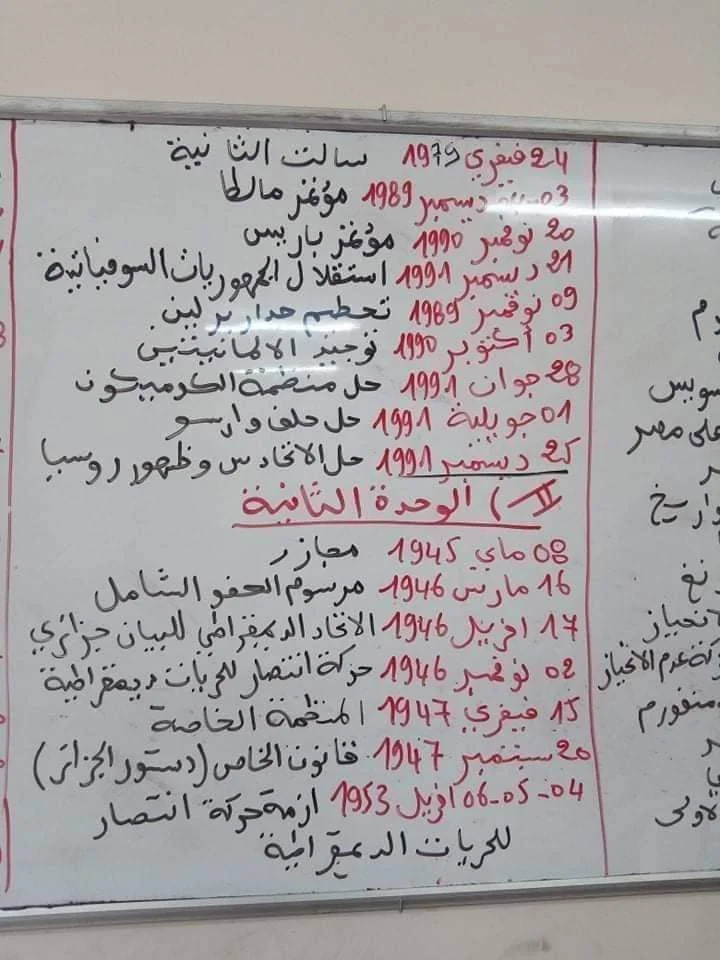 24 فيفري 1979 سالت الثانية
03 ديسمبر 1989 مؤتمر مالطا
20 نوفمبر 1990 مؤتمر باريس
21 ديسمبر 1991 استقلال الجمهوريات السوفياتية
09 نوفمبر 1989 تحطيم جدار برلين
03 أكتوبر 1990 توحيد الالمانيتين
28 جوان 1991 حل منظمة الكوميكون
01 جويلية 1991 حل حلف وارسو
25 ديسمبر 1991 حل الاتحاد س وظهور روسيا
II) الوحدة الثانية
08 ماي 1945 مجازر
16 مارس 1946 مرسوم العفو الشامل
17 افريل 1946 الاتحاد الديمقراطي للبيان جزائري
02 نوفمبر 1946 حركة انتصار للحريات ديمقراطية
15 فيفري 1947 المنظمة الخاصة
20 سبتمبر 1947 قانون الخاص (دستور الجزائر)
04-05-06 افريل 1953 ازمة حركة انتصار
للحريات الديمقراطية
سويس
على مصر
الانحياز
عدم الانحياز